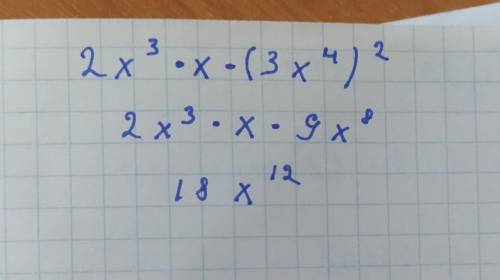 2x³ · x · (3x⁴)²
2x³ · x · 9x⁸
18x¹²